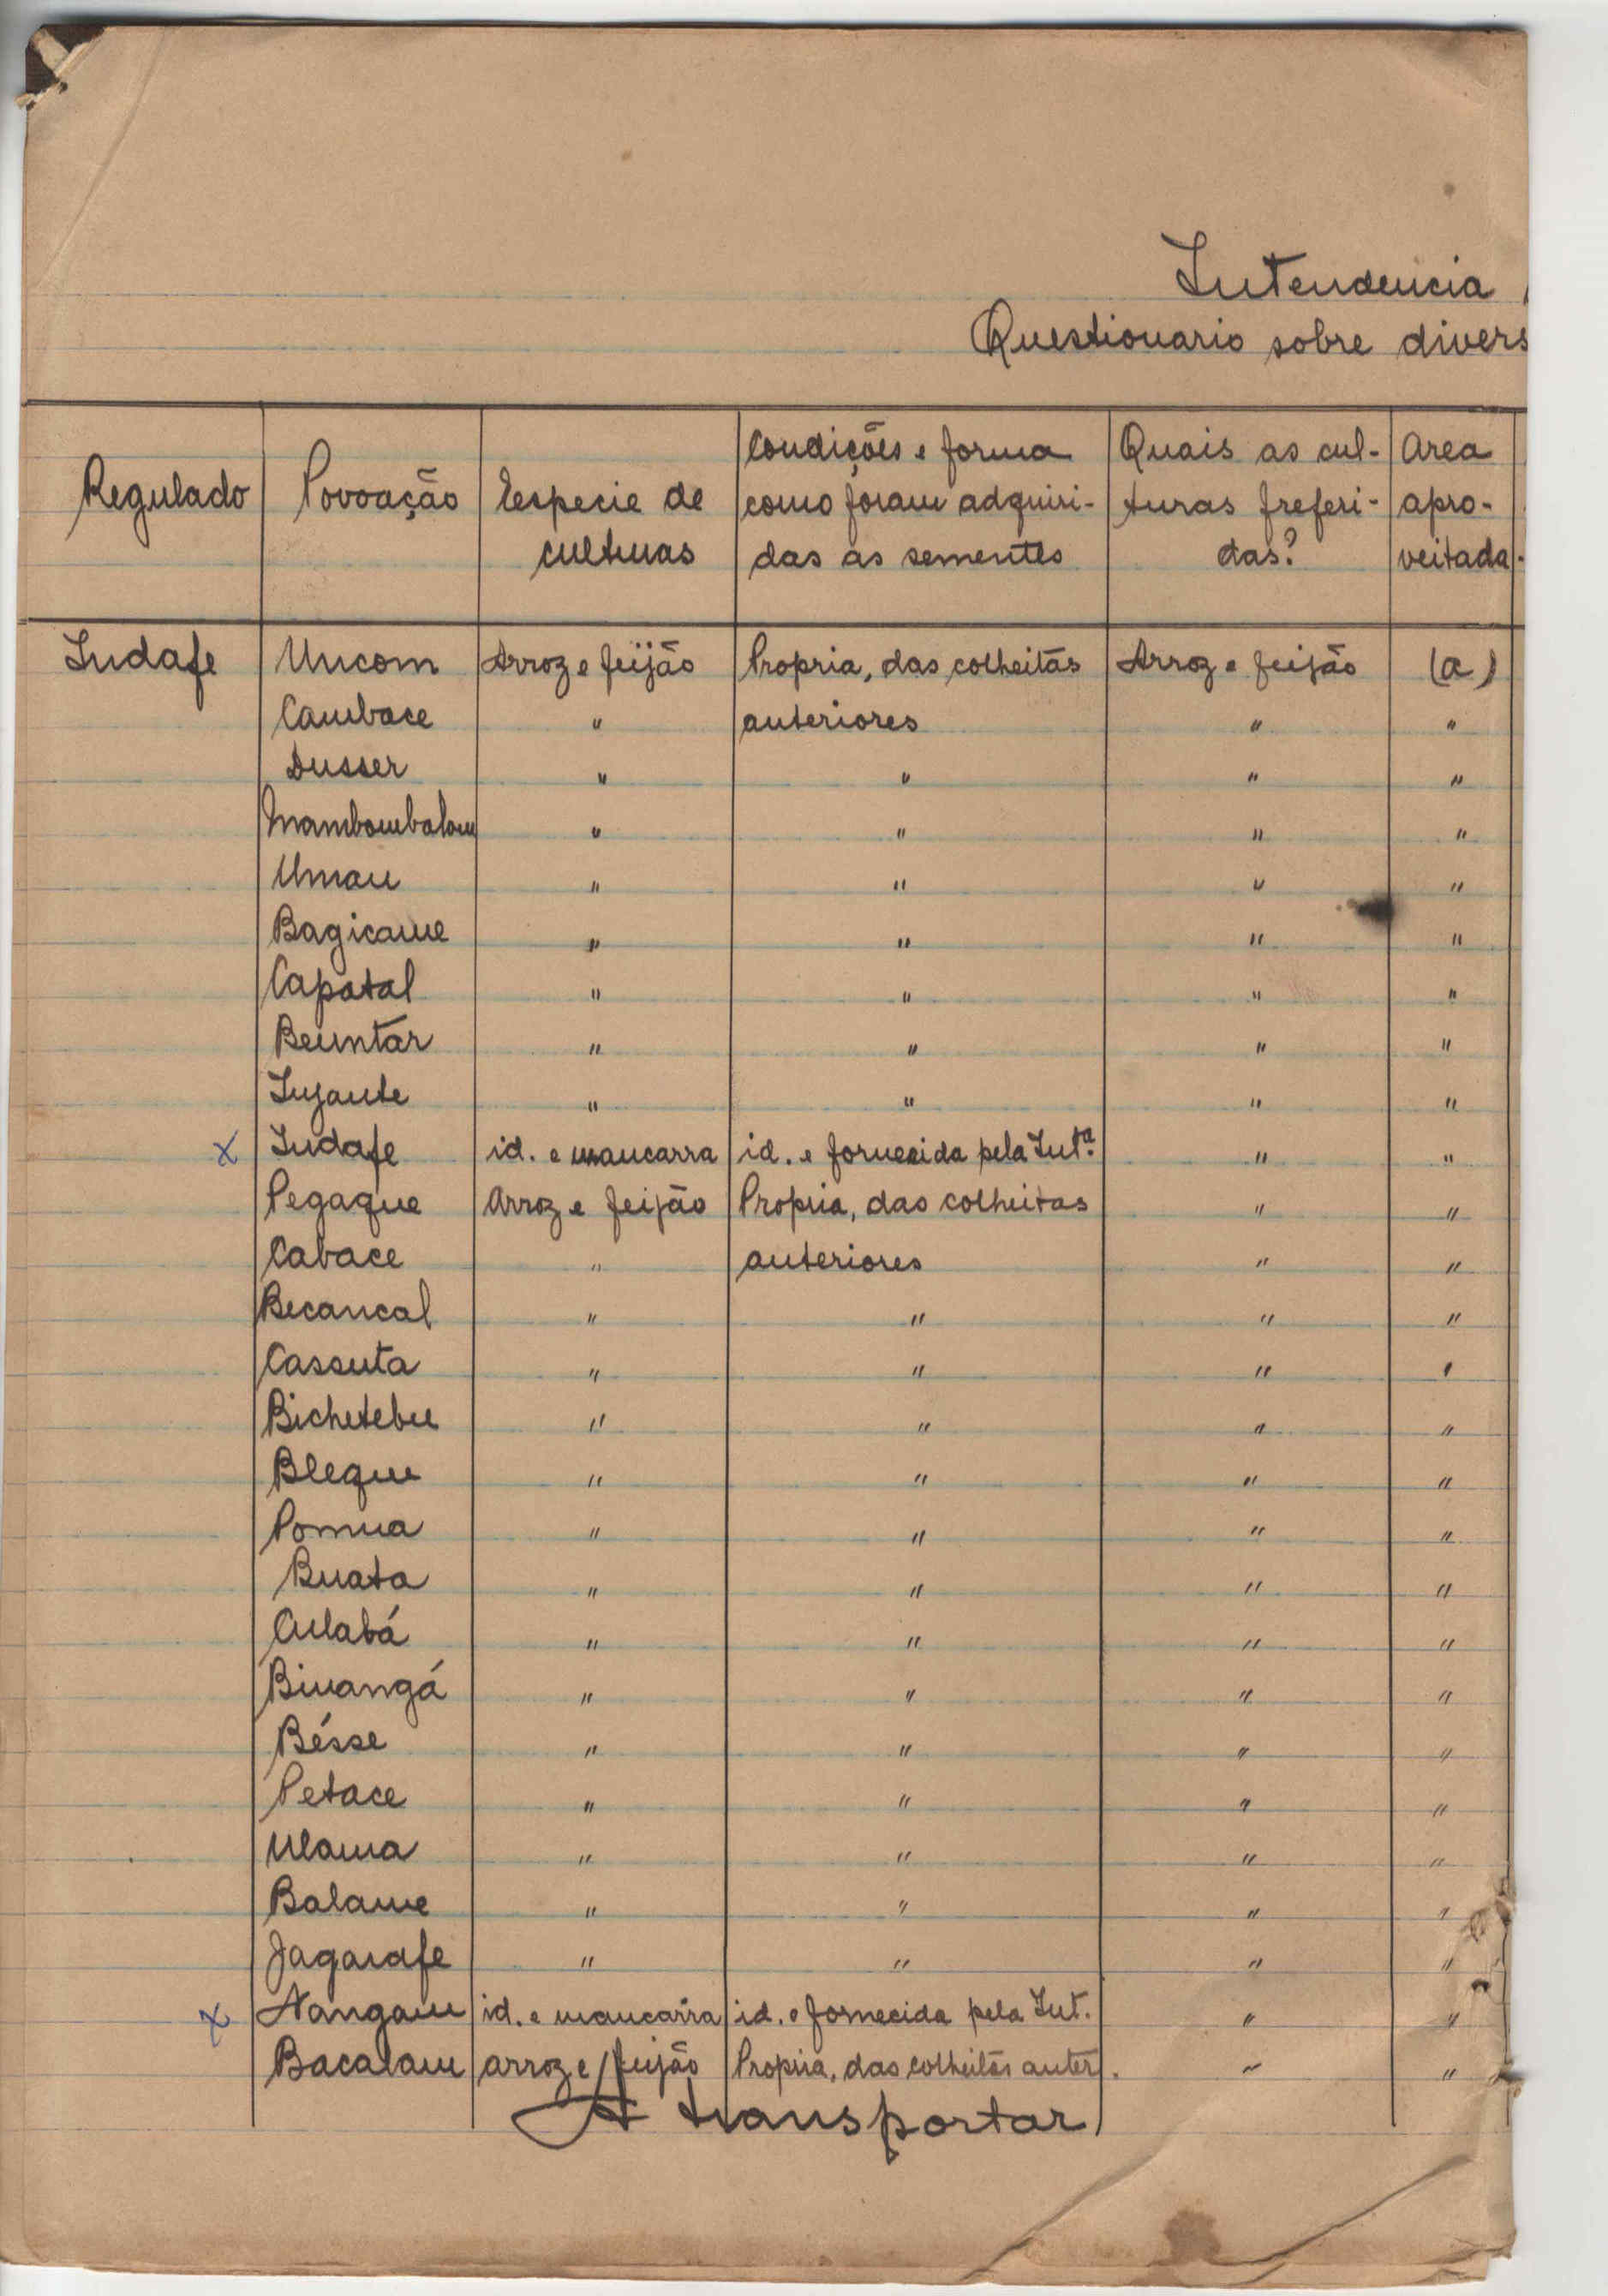 Intendencia
Questionario sobre divers
Regulado
Povoação
Especie de
culturas
Condições e forma
como foram adquiri-
das as sementes
Quais as cul-
turas preferi-
das?
Area
apro-
veitada
Indafe Uncom Arroz e feijão Propria, das colheitas Arroz e feijão (a)
Cambace " anteriores " "
Dusser " " " "
Mambombalam " " " "
Uman " " " "
Bagicame " " " "
Capatal " " " "
Beuntar " " " "
Injante " " " "
x Indafe id. e mancarra id. e fornecida pela Intª. " "
Pegaque Arroz e feijão Propria, das colheitas " "
Cabace " anteriores " "
Becancal " " " "
Cassuta " " " "
Bichetebu " " " "
Bleque " " " "
Pomua " " " "
Buata " " " "
Culabá " " " "
Binangá " " " "
Bésse " " " "
Petace " " " "
Ulama " " " "
Balame " " " "
Jagarafe " " " "
x Nangam id. e mancarra id. e fornecida pela Int. " "
Bacalam arroz e feijão Propria, das colheitas anter. " "
A transportar